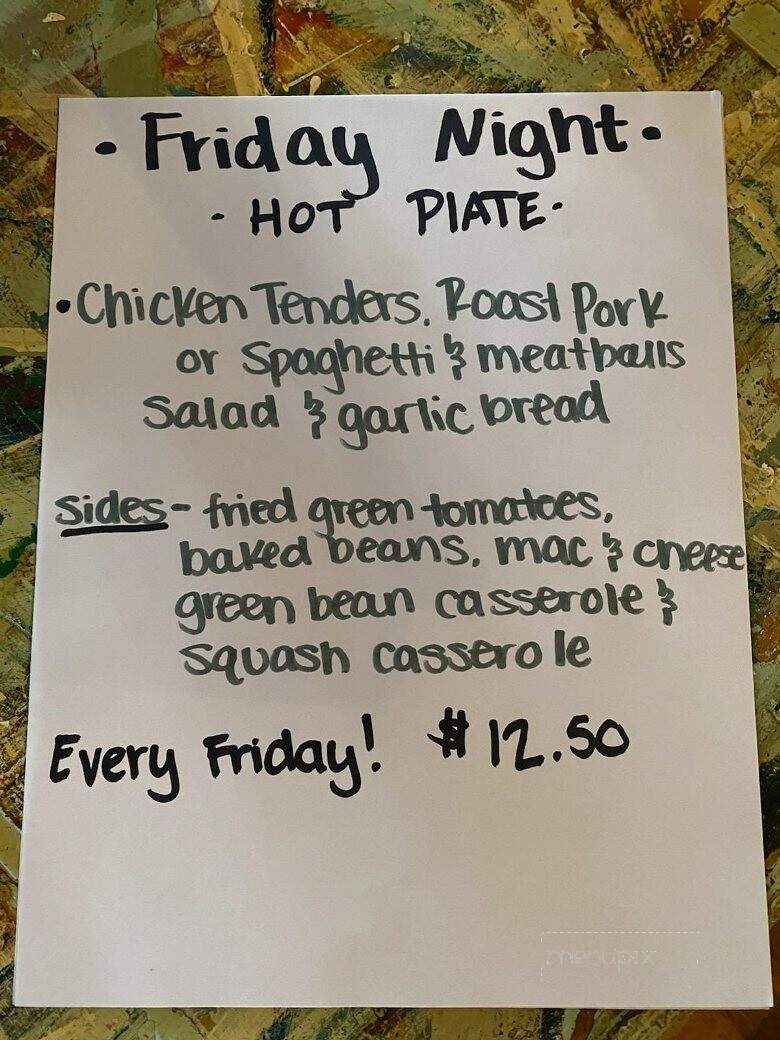 • Friday Night •
- HOT PlATE -
• Chicken Tenders, Roast Pork
or Spaghetti & meatballs
Salad & garlic bread
Sides - fried green tomatoes,
baked beans, mac & cheese
green bean casserole &
squash casserole
Every Friday! $12.50
menupix